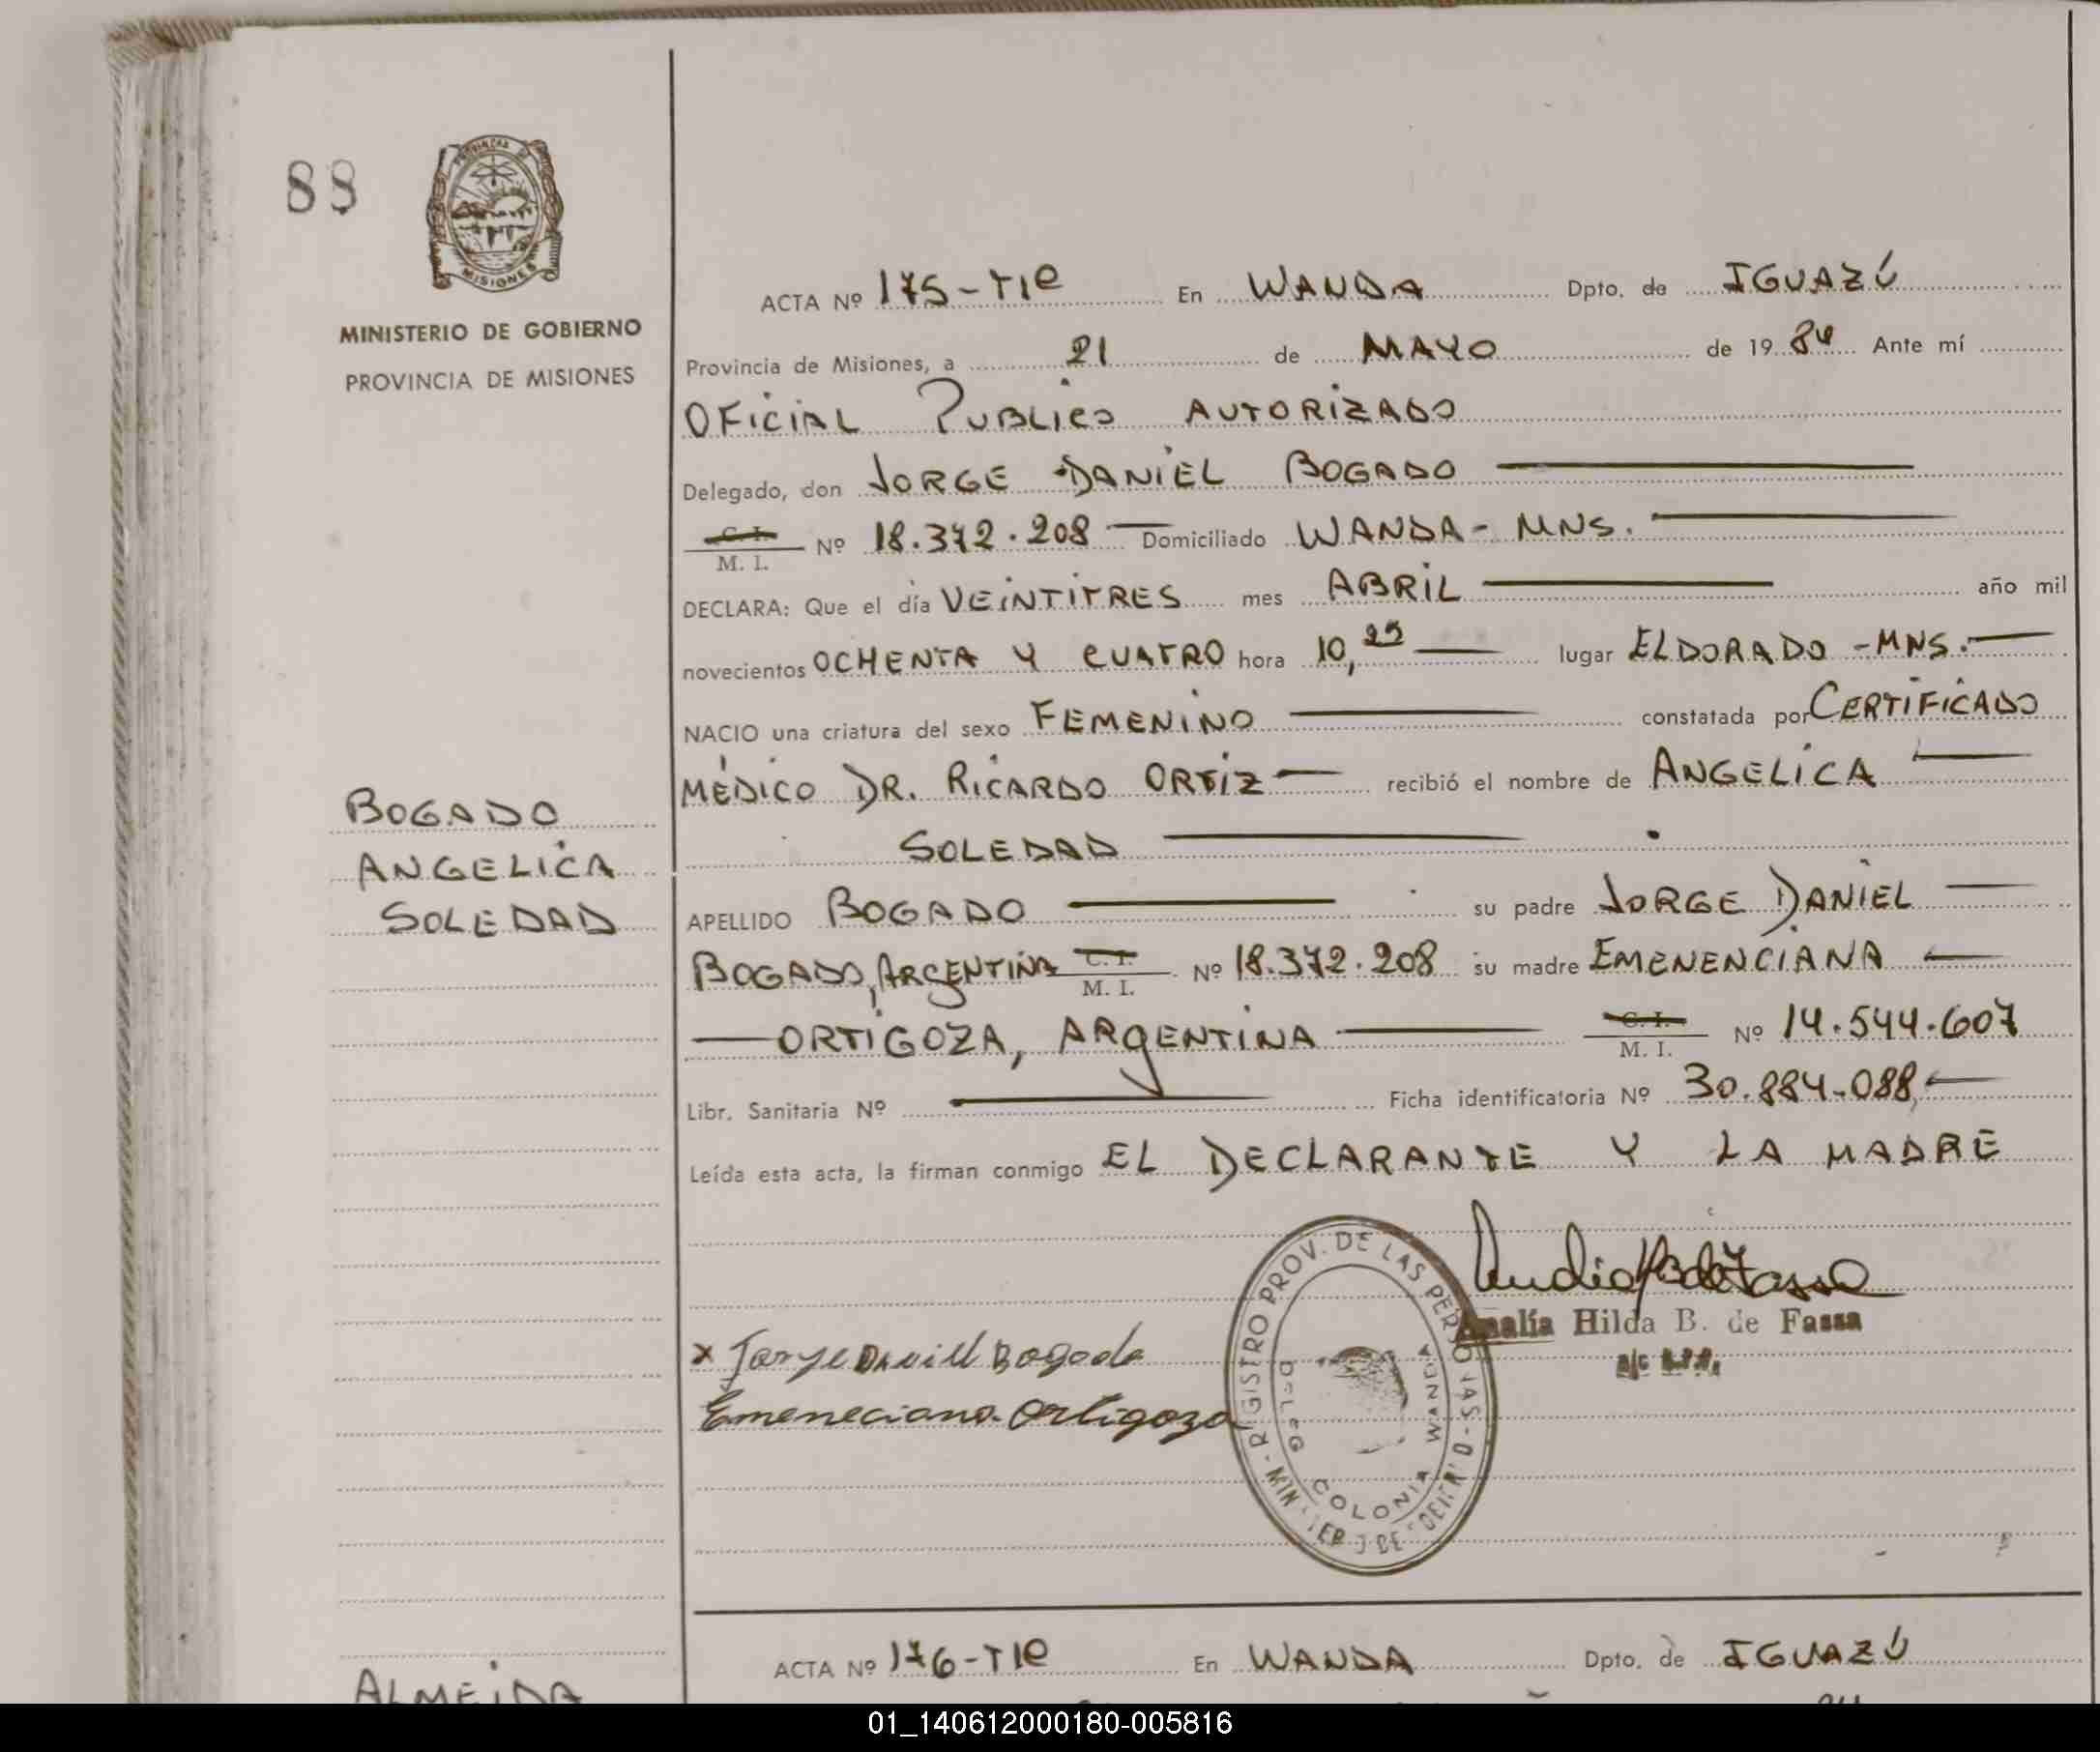 88
PROVINCIA DE
MISIONES
MINISTERIO DE GOBIERNO
PROVINCIA DE MISIONES
BOGADO
ANGELICA
SOLEDAD
ACTA Nº 175-TIC En WANDA Dpto. de IGUAZÚ
Provincia de Misiones, a 21 de MAYO de 1984 Ante mí
OFICIAL PUBLICO AUTORIZADO
Delegado, don JORGE DANIEL BOGADO
C. I. / M. I. Nº 18.372.208 Domiciliado WANDA - MNS.
DECLARA: Que el día VEINTITRES mes ABRIL año mil
novecientos OCHENTA Y CUATRO hora 10,25 lugar ELDORADO - MNS.
NACIO una criatura del sexo FEMENINO constatada por CERTIFICADO
MÉDICO DR. RICARDO ORTIZ recibió el nombre de ANGELICA
SOLEDAD
APELLIDO BOGADO su padre JORGE DANIEL
BOGADO, ARGENTINA C. I. / M. I. Nº 18.372.208 su madre EMENENCIANA
ORTIGOZA, ARGENTINA C. I. / M. I. Nº 14.544.607
Libr. Sanitaria Nº Ficha identificatoria Nº 30.884.088,
Leída esta acta, la firman conmigo EL DECLARANTE Y LA MADRE
Amalía Hilda B. de Fassa
REGISTRO PROV. DE LAS PERSONAS
DELEG COLONIA WANDA
x Jorge Daniel Bogado
Emeneciana Ortigoza
ACTA Nº 176-TIC En WANDA Dpto. de IGUAZÚ
ALMEIDA
01_140612000180-005816